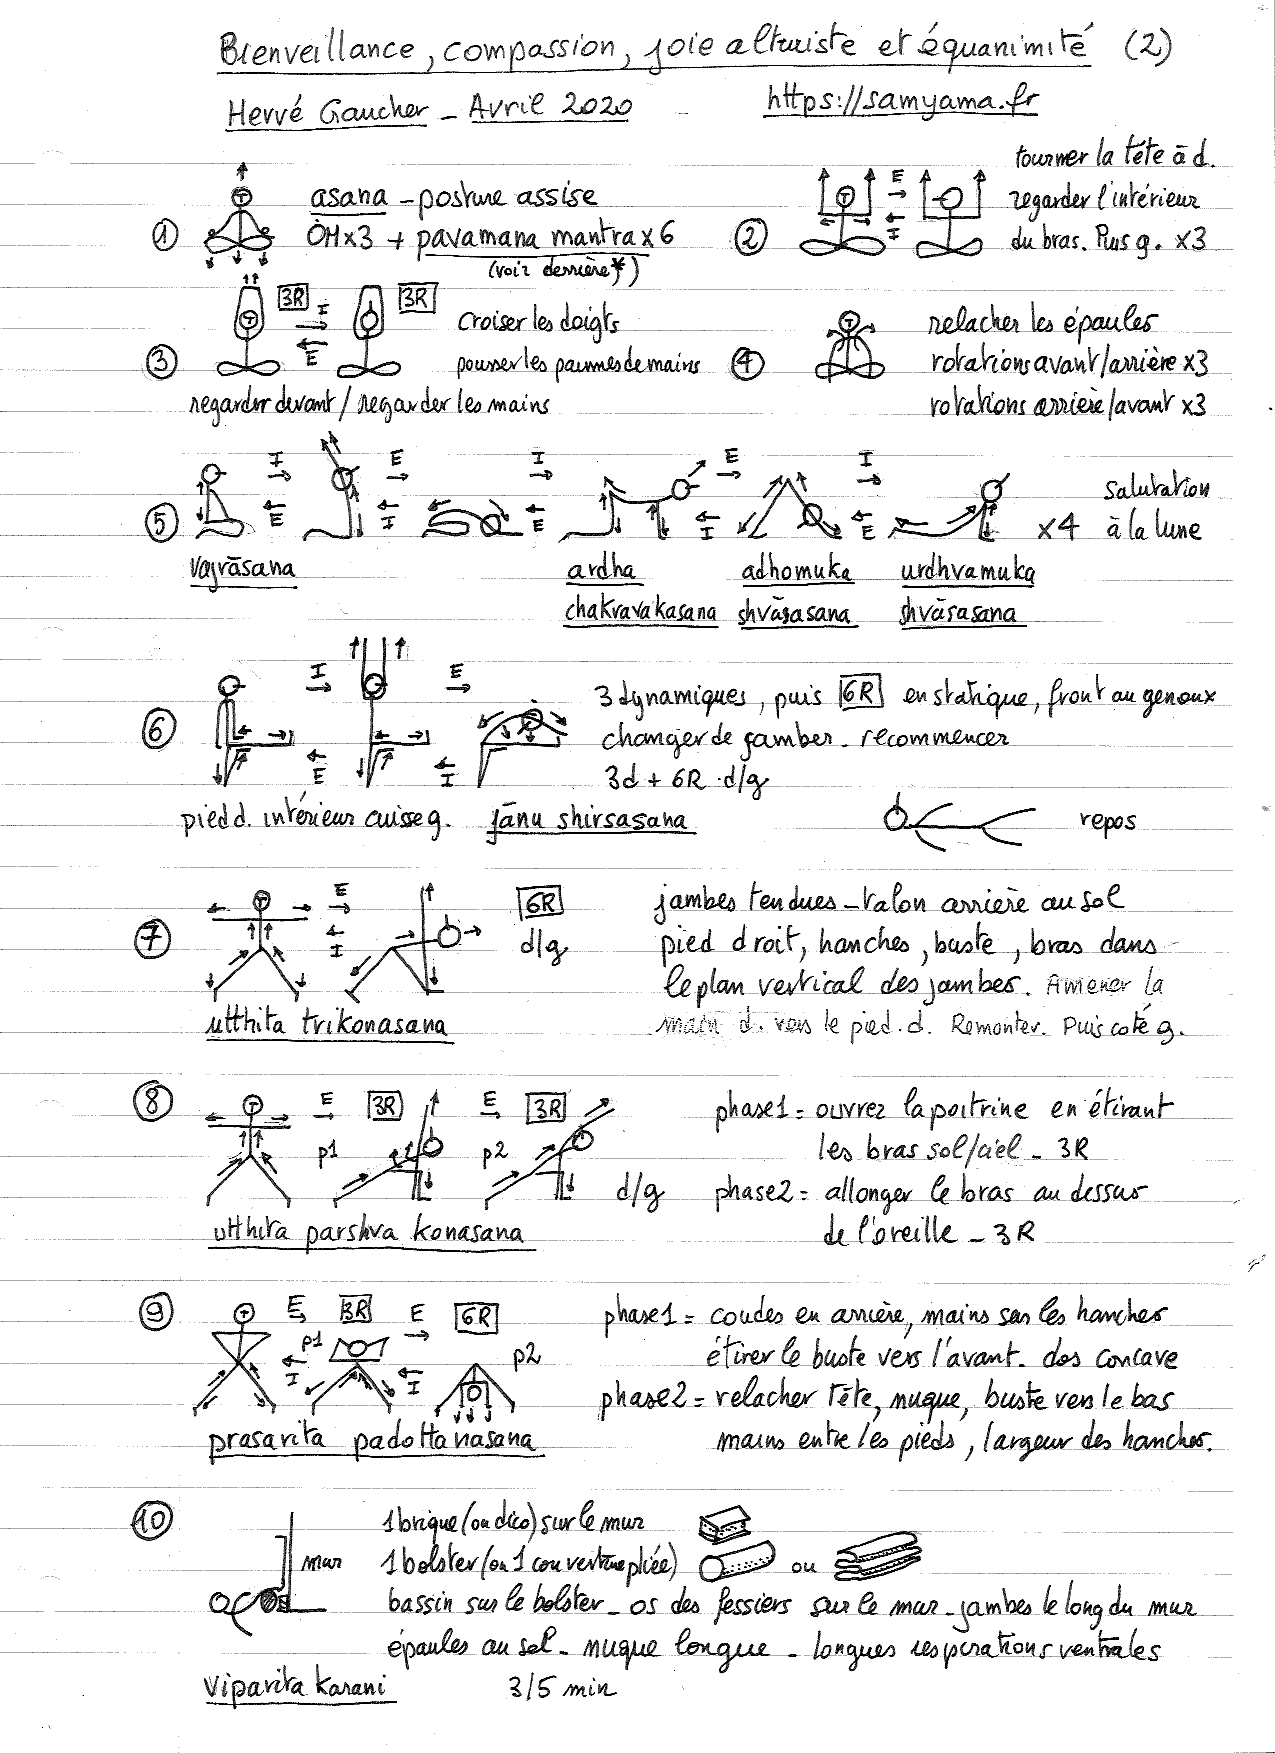 Bienveillance, compassion, joie altruiste et équanimité (2)
Hervé Gaucher - Avril 2020 https://samyama.fr
① asana - posture assise
ÔM x3 + pavamana mantra x 6
(voir derrière *)
② E I tourner la tête à d.
regarder l'intérieur
du bras. Puis g. x3
③ 3R I E 3R croiser les doigts
pousser les paumes de mains
regarder devant / regarder les mains
④ relacher les épaules
rotations avant/arrière x3
rotations arrière/avant x3
⑤ I E E I I E E I I E x4 salutation
à la lune
vajrāsana
ardha
chakravakasana
adhomuka
shvāsasana
urdhvamuka
shvāsasana
⑥ I E E I 3 dynamiques, puis 6R en statique, front au genoux
changer de jambes - recommencer
3d + 6R d/g
pied d. intérieur cuisse g. jānu shirsasana
repos
⑦ T E I 6R d/g jambes tendues - talon arrière au sol
pied droit, hanches, buste, bras dans
le plan vertical des jambes. Amener la
main d. vers le pied d. Remonter. Puis coté g.
utthita trikonasana
⑧ T E 3R E 3R p1 p2 d/g phase1 = ouvrez la poitrine en étirant
les bras sol/ciel - 3R
phase2 = allonger le bras au dessus
de l'oreille - 3R
utthita parshva konasana
⑨ T E 3R E 6R p1 I I p2 phase1 = coudes en arrière, mains sur les hanches
étirer le buste vers l'avant. dos concave
phase2 = relacher tête, nuque, buste vers le bas
mains entre les pieds, largeur des hanches.
prasarita padottanasana
⑩ mur 1 brique (ou dico) sur le mur
1 bolster (ou 1 couverture pliée) ou
bassin sur le bolster - os des fessiers sur le mur - jambes le long du mur
épaules au sol - nuque longue - longues respirations ventrales
Viparita Karani 3/5 min